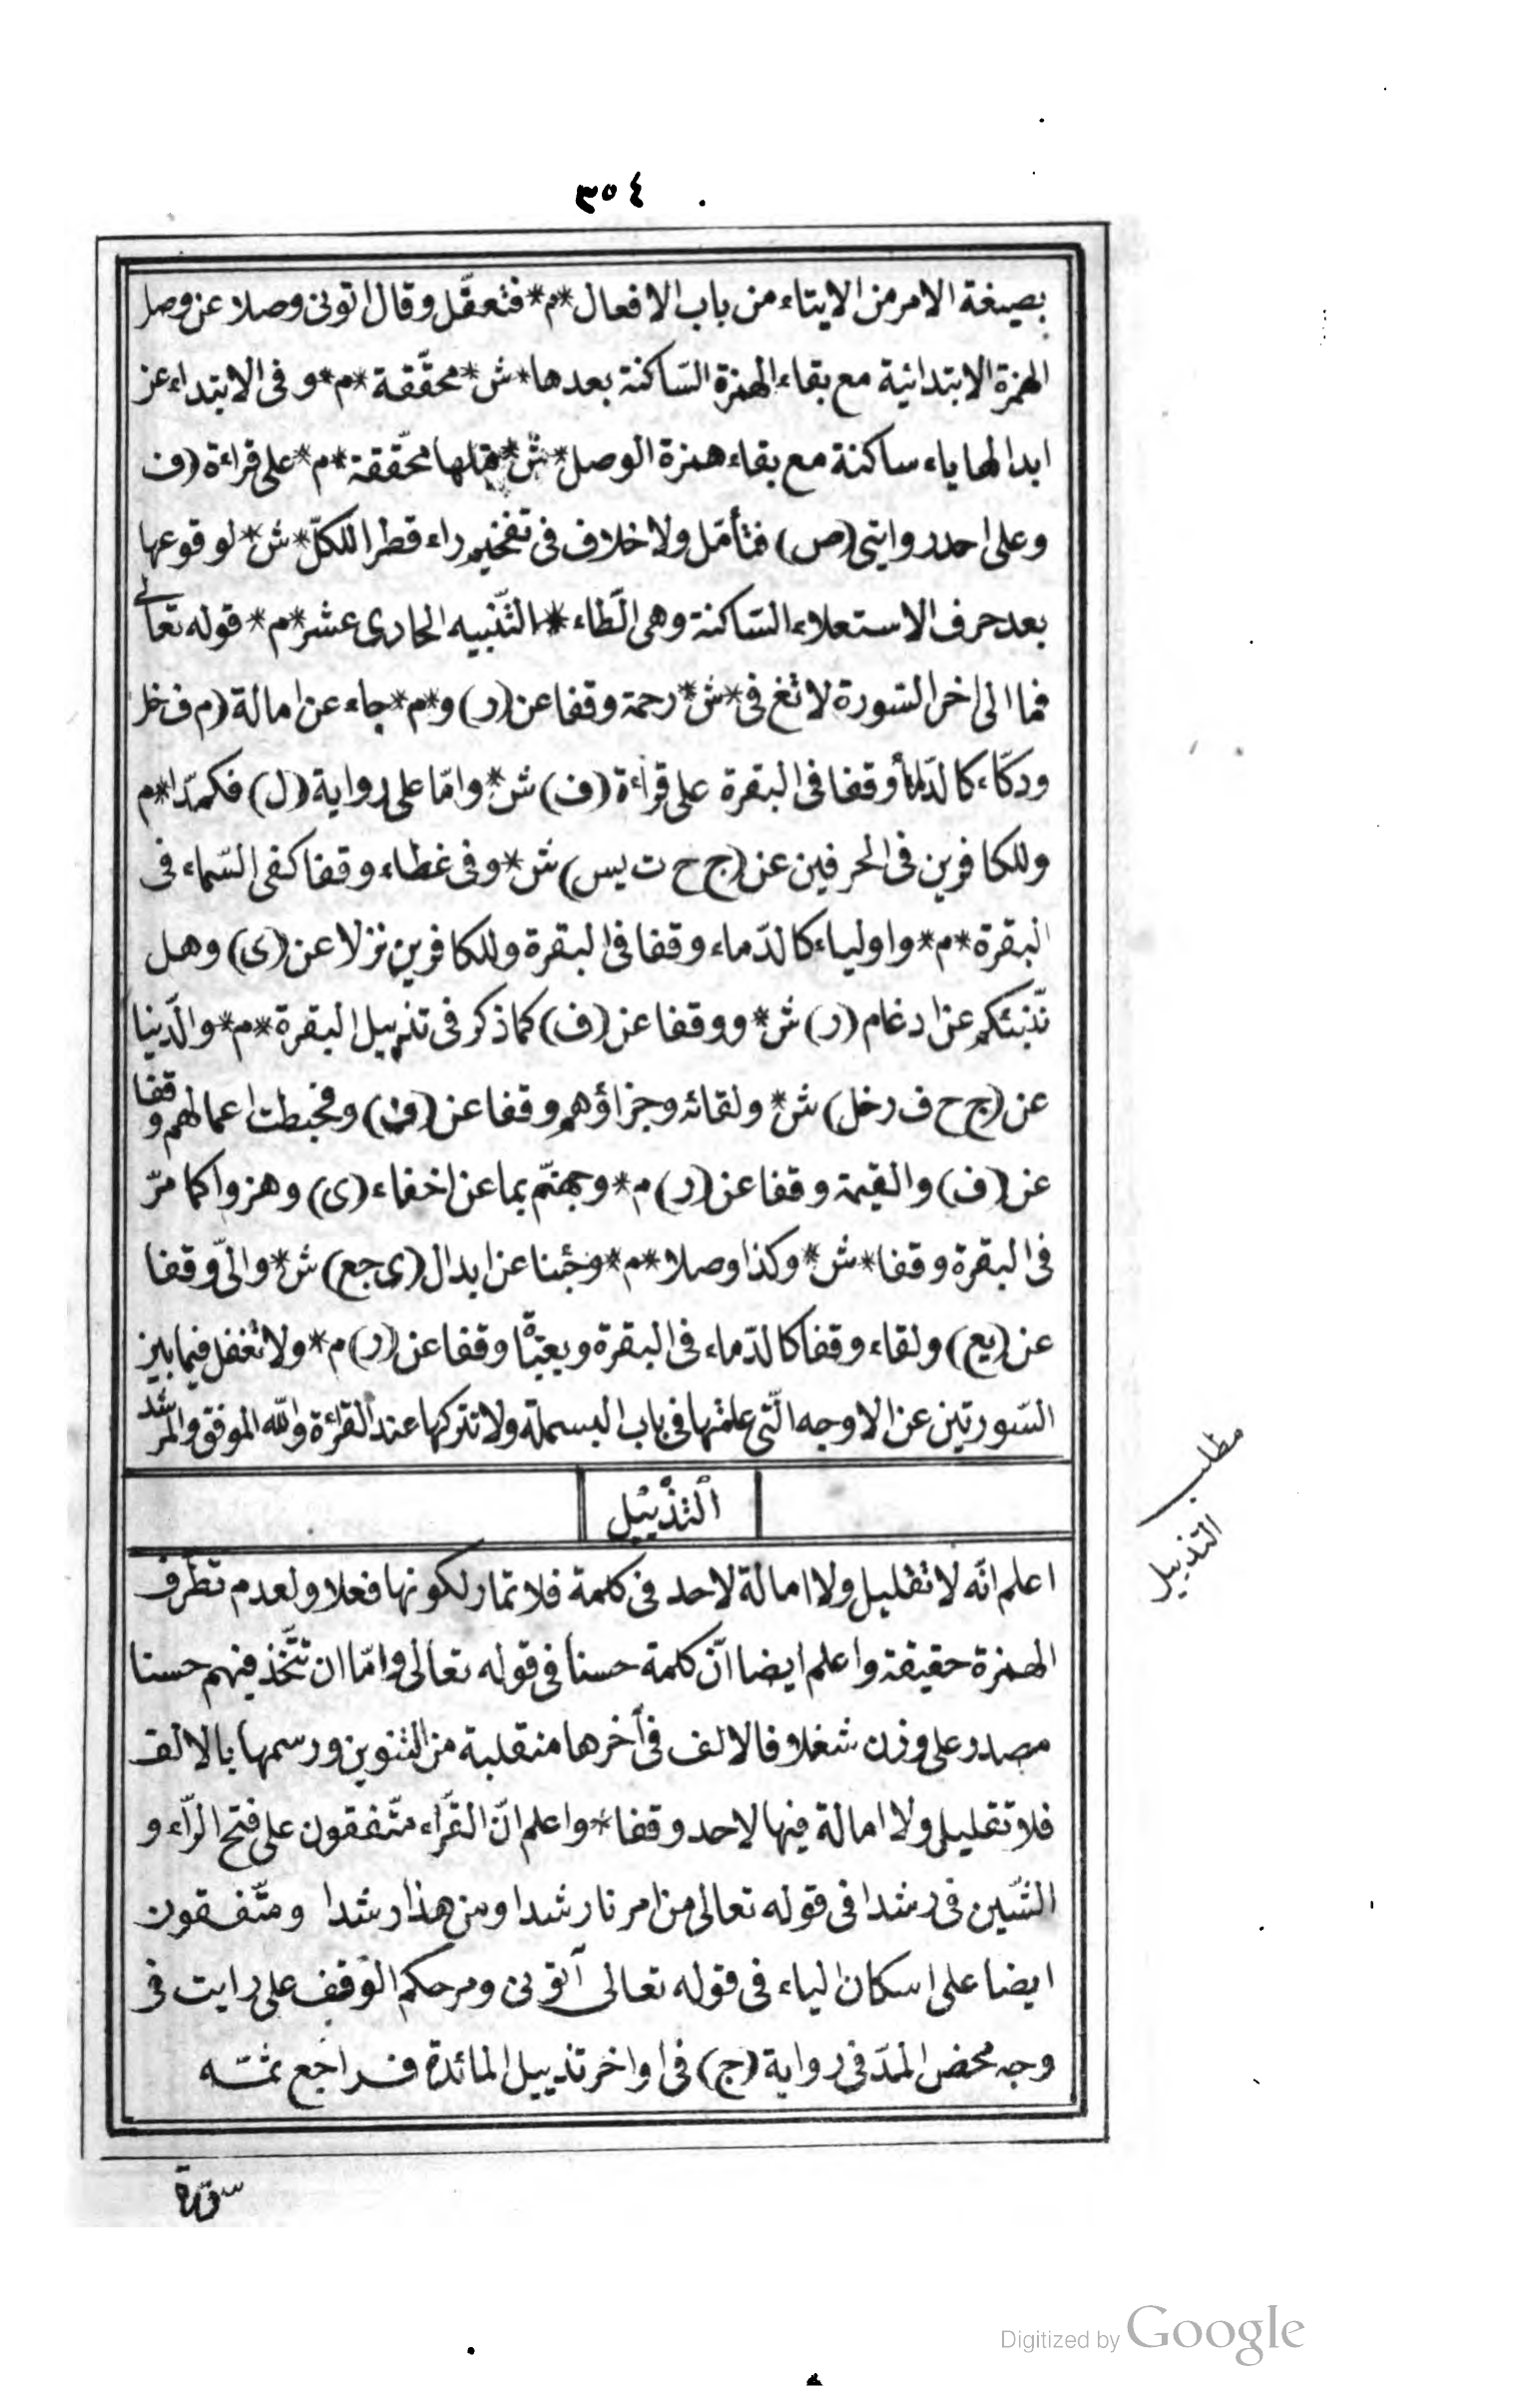 ٣٥٤
بصيغة الامر من الايتاء من باب الافعال *م* فتعقّل وقال اتونى وصلا عن وصل
الهمزة الابتدائية مع بقاء الهمزة السّاكنة بعدها *ش* محقّقة *م* وفى الابتداء عن
ابدالها ياء ساكنة مع بقاء همزة الوصل *ش* قبلها محقّقة *م* على قراءة (ف
وعلى احدر روايتى (ص) فتأمّل ولا خلاف فى تفخيم راء قطرا للكلّ *ش* لوقوعها
بعد حرف الاستعلاء السّاكنة وهى الطّاء * التّنبيه الحادى عشر *م* قوله تعالى
فما الى اخر السّورة لا تغ فى *ش* رحمة وقفا عن (ر) و *م* جاء عن امالة (م ف خل
ودكّاء كالدّماء وقفا فى البقرة على قراءة (ف) ش* وامّا على رواية (ل) فكمدّا *م
وللكافرين فى الحرفين عن (ج ح ت يس) ش* وفى غطاء وقفا كفى السّماء فى
البقرة *م* واولياء كالدّماء وقفا فى البقرة وللكافرين نزلا عن (ى) وهل
نّنبئكم عن ادغام (ر) ش* ووقفا عن (ف) كما ذكر فى تذييل البقرة *م* والدّنيا
عن (ج ح ف ر خل) ش* ولقائه وجزاؤهم وقفا عن (ف) وفحبطت اعمالهم وقفا
عن (ف) والقيمة وقفا عن (ر) م* وجهنّم بما عن اخفاء (ى) وهزوا كما مرّ
فى البقرة وقفا *ش* وكذا وصلا *م* وجئنا عن ابدال (ى جع) ش* والىّ وقفا
عن (يع) ولقاء وقفا كالدّماء فى البقرة وبعبادة وقفا عن (ر) م* ولا تغفل فيما بين
السّورتين عن الاوجه الّتى علمتها فى باب البسملة ولا تتركها عند القراءة والله الموفق والمرشد
التّذييل
مطلب
التذييل
اعلم انّه لا تقليل ولا امالة لاحد فى كلمة فلا تمار لكونها فعلا ولعدم تطرف
الهمزة حقيقة واعلم ايضا انّ كلمة حسنا فى قوله تعالى وامّا ان تتّخذ فيهم حسنا
مصدر على وزن شغلا فالالف فى آخرها منقلبة من التنوين ورسمها بالالف
فلا تقليل ولا امالة فيها لاحد وقفا * واعلم انّ القرّاء متّفقون على فتح الرّاء و
الشّين فى رشدا فى قوله تعالى من امرنا رشدا ومن هذا رشدا ومتّفقون
ايضا على اسكان الياء فى قوله تعالى آتونى ومر حكم الوقف على رايت فى
وجه محض المدّ فى رواية (ج) فى اواخر تذييل المائدة فراجع ثمّه
سورة
Digitized by Google